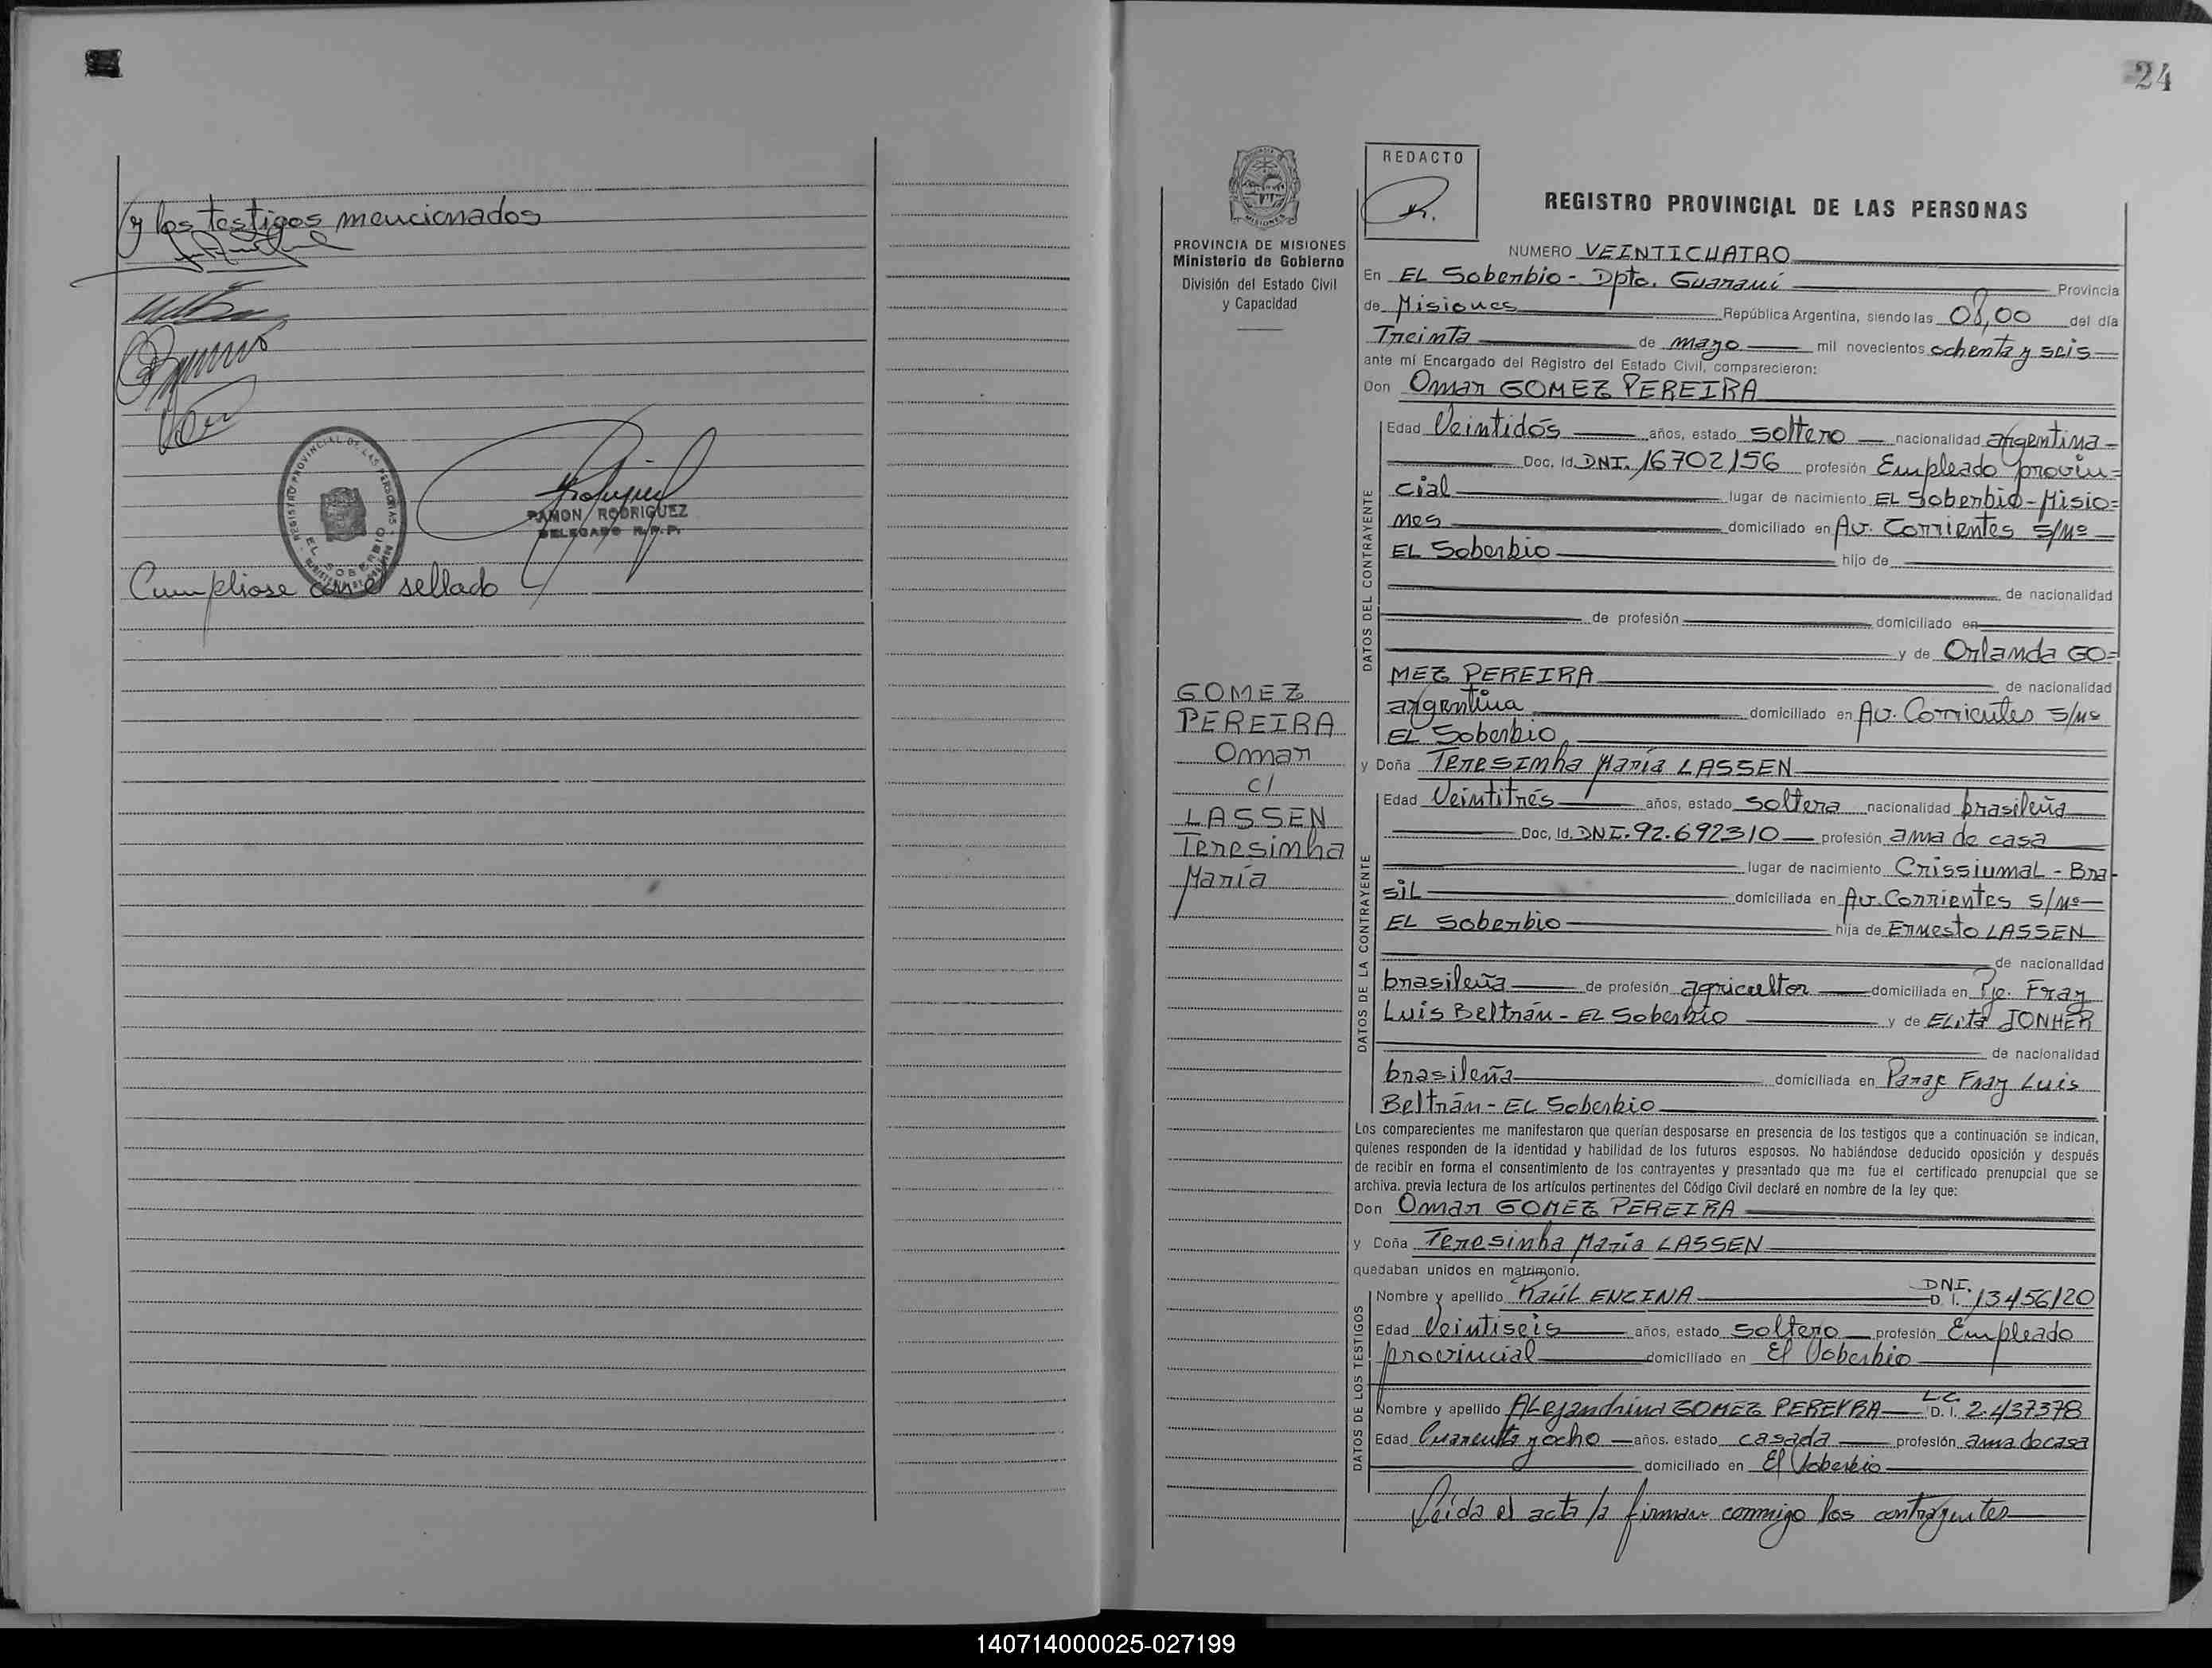 y los testigos mencionados
REGISTRO PROVINCIAL DE LAS PERSONAS
EL SOBERBIO
RAMON RODRIGUEZ
DELEGADO R.P.P.
Cumpliose con el sellado
24
PROVINCIA DE MISIONES
Ministerio de Gobierno
División del Estado Civil
y Capacidad
GOMEZ
PEREIRA
Omar
c/
LASSEN
Teresinha
María
REDACTO
REGISTRO PROVINCIAL DE LAS PERSONAS
NUMERO VEINTICUATRO
En EL Soberbio - Dpto. Guaraní Provincia
de Misiones República Argentina, siendo las 08,00 del día
Treinta de mayo mil novecientos ochenta y seis
ante mí Encargado del Registro del Estado Civil, comparecieron:
Don Omar GOMEZ PEREIRA
DATOS DEL CONTRAYENTE
Edad Veintidós años, estado soltero nacionalidad argentina
Doc. Id. DNI. 16702156 profesión Empleado provin=
cial lugar de nacimiento EL Soberbio - Misio=
nes domiciliado en Av. Corrientes s/nº
EL Soberbio hijo de
de nacionalidad
de profesión domiciliado en
y de Orlanda GO=
MEZ PEREIRA de nacionalidad
argentina domiciliado en Av. Corrientes s/nº
EL Soberbio
y Doña Teresinha María LASSEN
DATOS DE LA CONTRAYENTE
Edad Veintitrés años, estado soltera nacionalidad brasileña
Doc. Id. DNI. 92.692310 profesión ama de casa
lugar de nacimiento Crissiumal - Bra-
sil domiciliada en Av. Corrientes s/nº
EL Soberbio hija de Ernesto LASSEN
de nacionalidad
brasileña de profesión agricultor domiciliada en Pje. Fray
Luis Beltrán - EL Soberbio y de Elita JONHER
de nacionalidad
brasileña domiciliada en Paraje Fray Luis
Beltrán - EL Soberbio
Los comparecientes me manifestaron que querían desposarse en presencia de los testigos que a continuación se indican,
quienes responden de la identidad y habilidad de los futuros esposos. No habiéndose deducido oposición y después
de recibir en forma el consentimiento de los contrayentes y presentado que me fue el certificado prenupcial que se
archiva, previa lectura de los artículos pertinentes del Código Civil declaré en nombre de la ley que:
Don Omar GOMEZ PEREIRA
y Doña Teresinha María LASSEN
quedaban unidos en matrimonio.
DATOS DE LOS TESTIGOS
Nombre y apellido Raúl ENCINA DNI. D. I. 13456120
Edad Veintiseis años, estado soltero profesión Empleado
provincial domiciliado en El Soberbio
Nombre y apellido Alejandrina GOMEZ PEREYRA L.C. D. I. 2.437378
Edad Cuarenta y ocho años, estado casada profesión ama de casa
domiciliado en El Soberbio
Leída el acta la firman conmigo los contrayentes
140714000025-027199